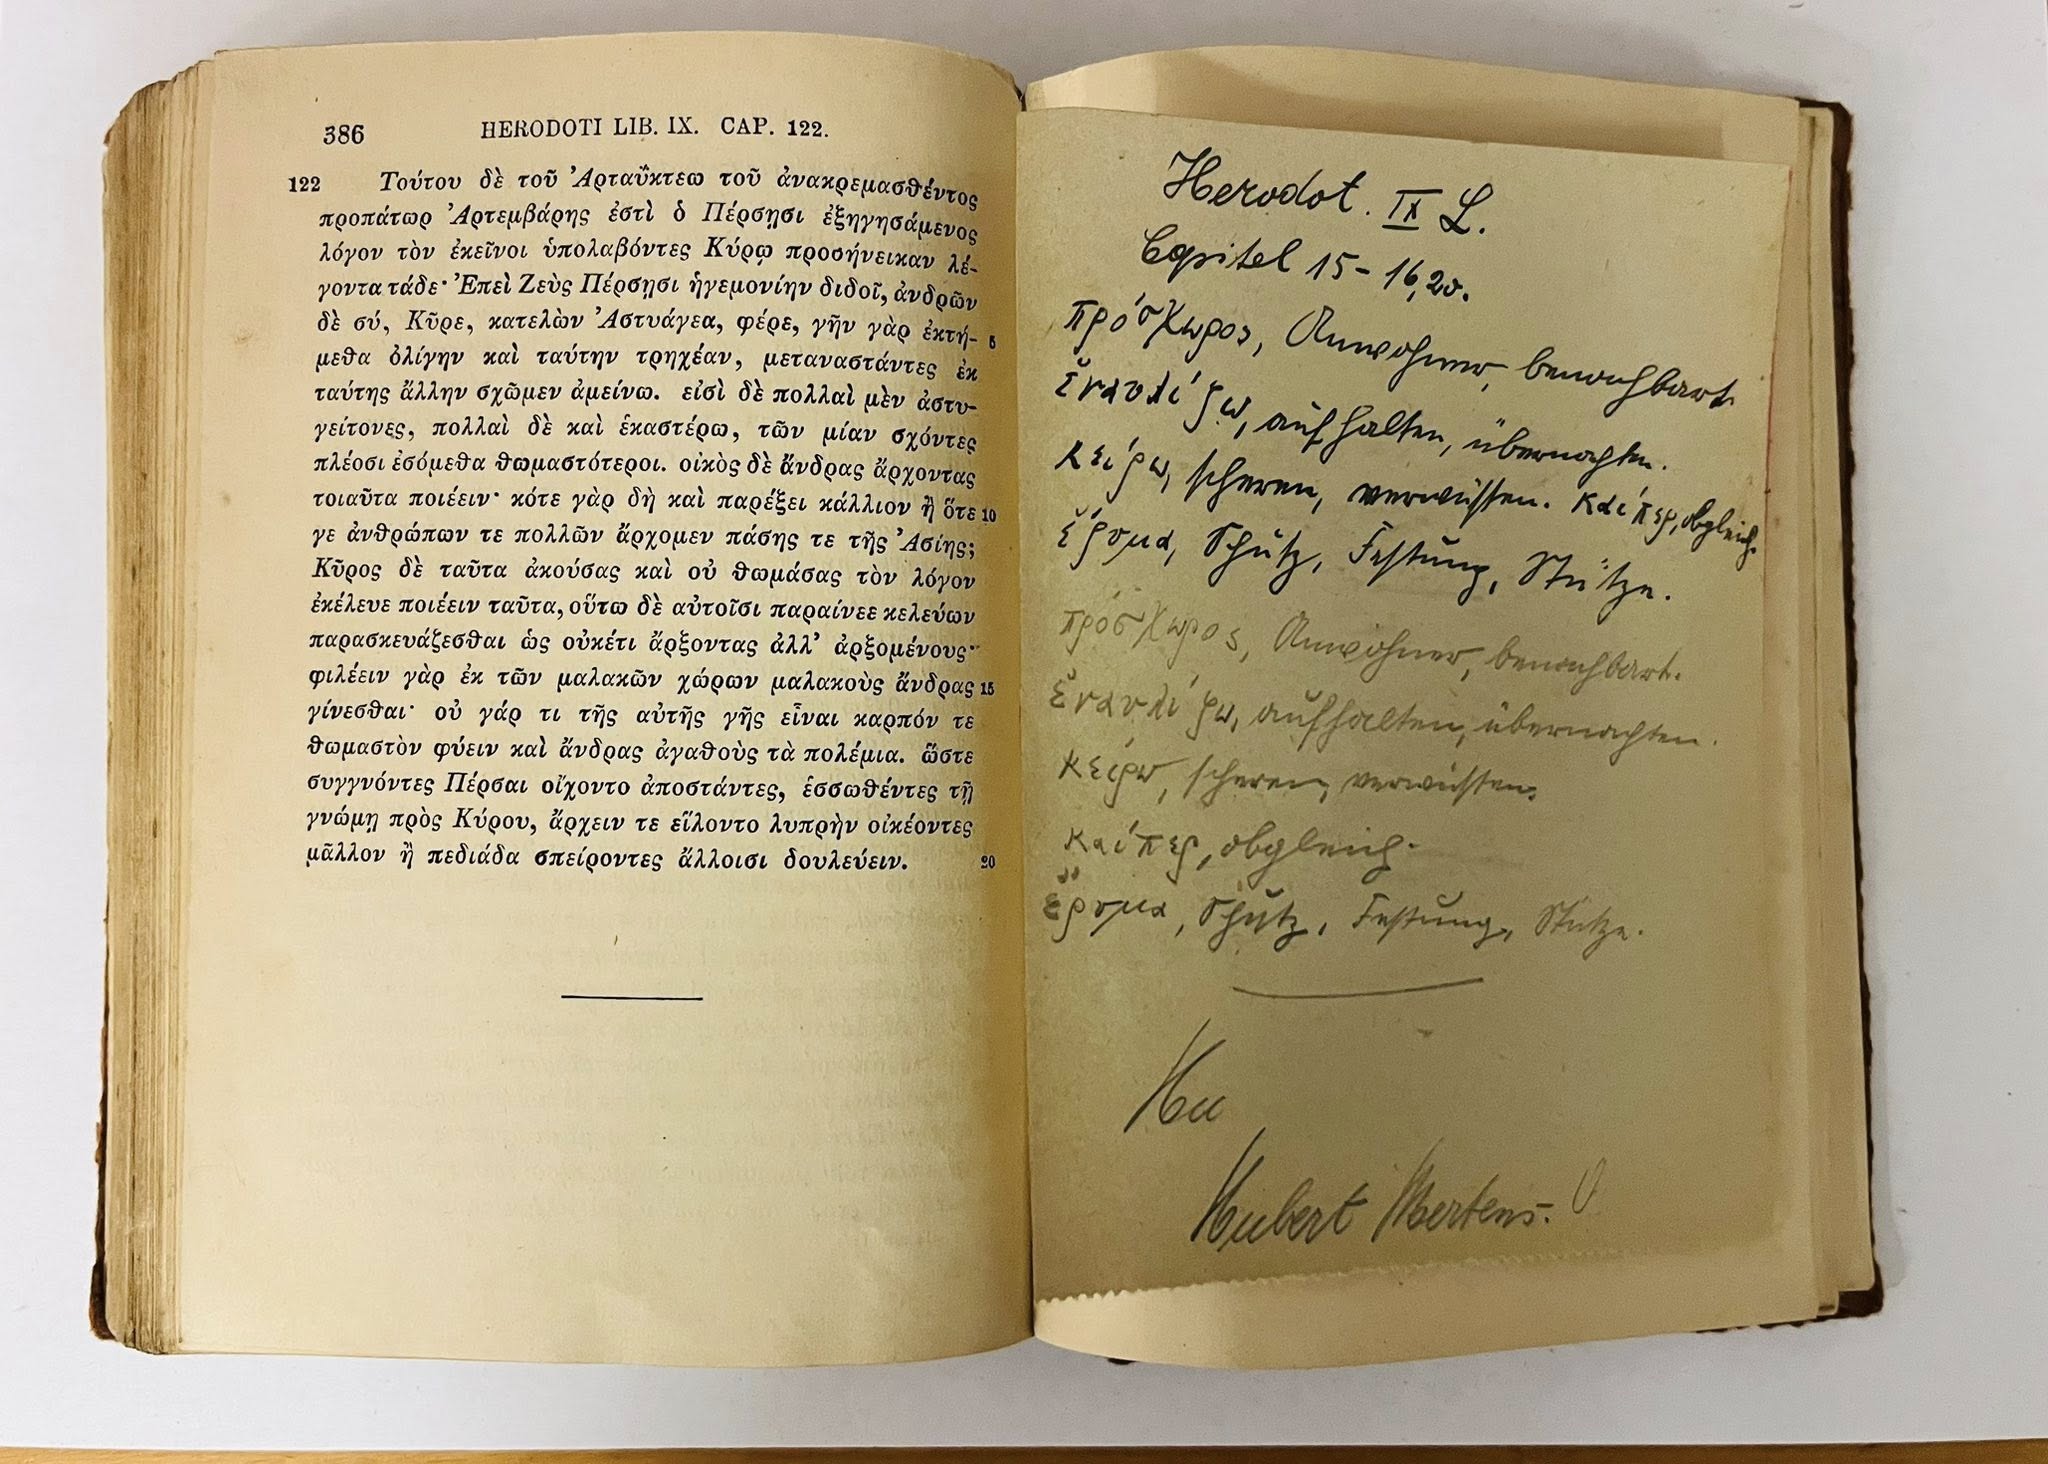 386 HERODOTI LIB. IX. CAP. 122.
122 Τούτου δὲ τοῦ Ἀρταΰκτεω τοῦ ἀνακρεμασθέντος
προπάτωρ Ἀρτεμβάρης ἐστὶ ὁ Πέρσῃσι ἐξηγησάμενος
λόγον τὸν ἐκεῖνοι ὑπολαβόντες Κύρῳ προσήνεικαν λέ-
γοντα τάδε· Ἐπεὶ Ζεὺς Πέρσῃσι ἡγεμονίην διδοῖ, ἀνδρῶν
δὲ σύ, Κῦρε, κατελὼν Ἀστυάγεα, φέρε, γῆν γὰρ ἐκτή- 5
μεθα ὀλίγην καὶ ταύτην τρηχέαν, μεταναστάντες ἐκ
ταύτης ἄλλην σχῶμεν ἀμείνω. εἰσὶ δὲ πολλαὶ μὲν ἀστυ-
γείτονες, πολλαὶ δὲ καὶ ἑκαστέρω, τῶν μίαν σχόντες
πλέοσι ἐσόμεθα θωμαστότεροι. οἰκὸς δὲ ἄνδρας ἄρχοντας
τοιαῦτα ποιέειν· κότε γὰρ δὴ καὶ παρέξει κάλλιον ἢ ὅτε 10
γε ἀνθρώπων τε πολλῶν ἄρχομεν πάσης τε τῆς Ἀσίης;
Κῦρος δὲ ταῦτα ἀκούσας καὶ οὐ θωμάσας τὸν λόγον
ἐκέλευε ποιέειν ταῦτα, οὕτω δὲ αὐτοῖσι παραίνεε κελεύων
παρασκευάζεσθαι ὡς οὐκέτι ἄρξοντας ἀλλ’ ἀρξομένους·
φιλέειν γὰρ ἐκ τῶν μαλακῶν χώρων μαλακοὺς ἄνδρας 15
γίνεσθαι· οὐ γάρ τι τῆς αὐτῆς γῆς εἶναι καρπόν τε
θωμαστὸν φύειν καὶ ἄνδρας ἀγαθοὺς τὰ πολέμια. ὥστε
συγγνόντες Πέρσαι οἴχοντο ἀποστάντες, ἑσσωθέντες τῇ
γνώμῃ πρὸς Κύρου, ἄρχειν τε εἵλοντο λυπρὴν οἰκέοντες
μᾶλλον ἢ πεδιάδα σπείροντες ἄλλοισι δουλεύειν. 20
Herodot. IX L.
Capitel 15-16,20.
πρόσχωρος, Anwohner, benachbart.
ἐναυλίζω, aufhalten, übernachten.
κείρω, scheren, verwüsten. καίπερ, obgleich.
ἔρυμα, Schutz, Festung, Stütze.
πρόσχωρος, Anwohner, benachbart.
ἐναυλίζω, aufhalten, übernachten.
κείρω, scheren, verwüsten.
καίπερ, obgleich.
ἔρυμα, Schutz, Festung, Stütze.
Hu
Hubert Mertens.